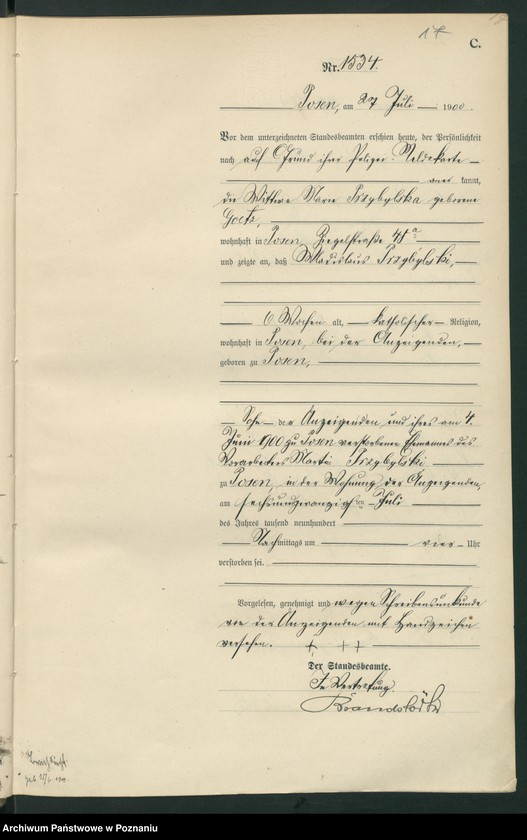 17
C.
Nr. 1534.
Posen, am 27 Juli 1900.
Vor dem unterzeichneten Standesbeamten erschien heute, der Persönlichkeit
nach auf Grund ihrer Polizei-Meldekarte
anerkannt,
die Wittwe Marie Przybylska geborene
Goetz,
wohnhaft in Posen, Ziegelstraße
und zeigte an, daß Przybylski,
6 Wochen alt, katholischer Religion,
wohnhaft in Posen, bei der Anzeigenden,
geboren zu Posen,
Sohn der Anzeigenden und ihres am 4.
Juni 1900 zu Posen verstorbenen Ehemannes des
Vorarbeiters Martin Przybylski
zu Posen, in der Wohnung der Anzeigenden,
am sechsundzwanzigsten Juli
des Jahres tausend neunhundert
Nachmittags um vier Uhr
verstorben sei.
Vorgelesen, genehmigt und wegen Schreibensunkunde
von der Anzeigenden mit Handzeichen
versehen. + ++
Der Standesbeamte.
In Vertretung.
Archiwum Państwowe w Poznaniu